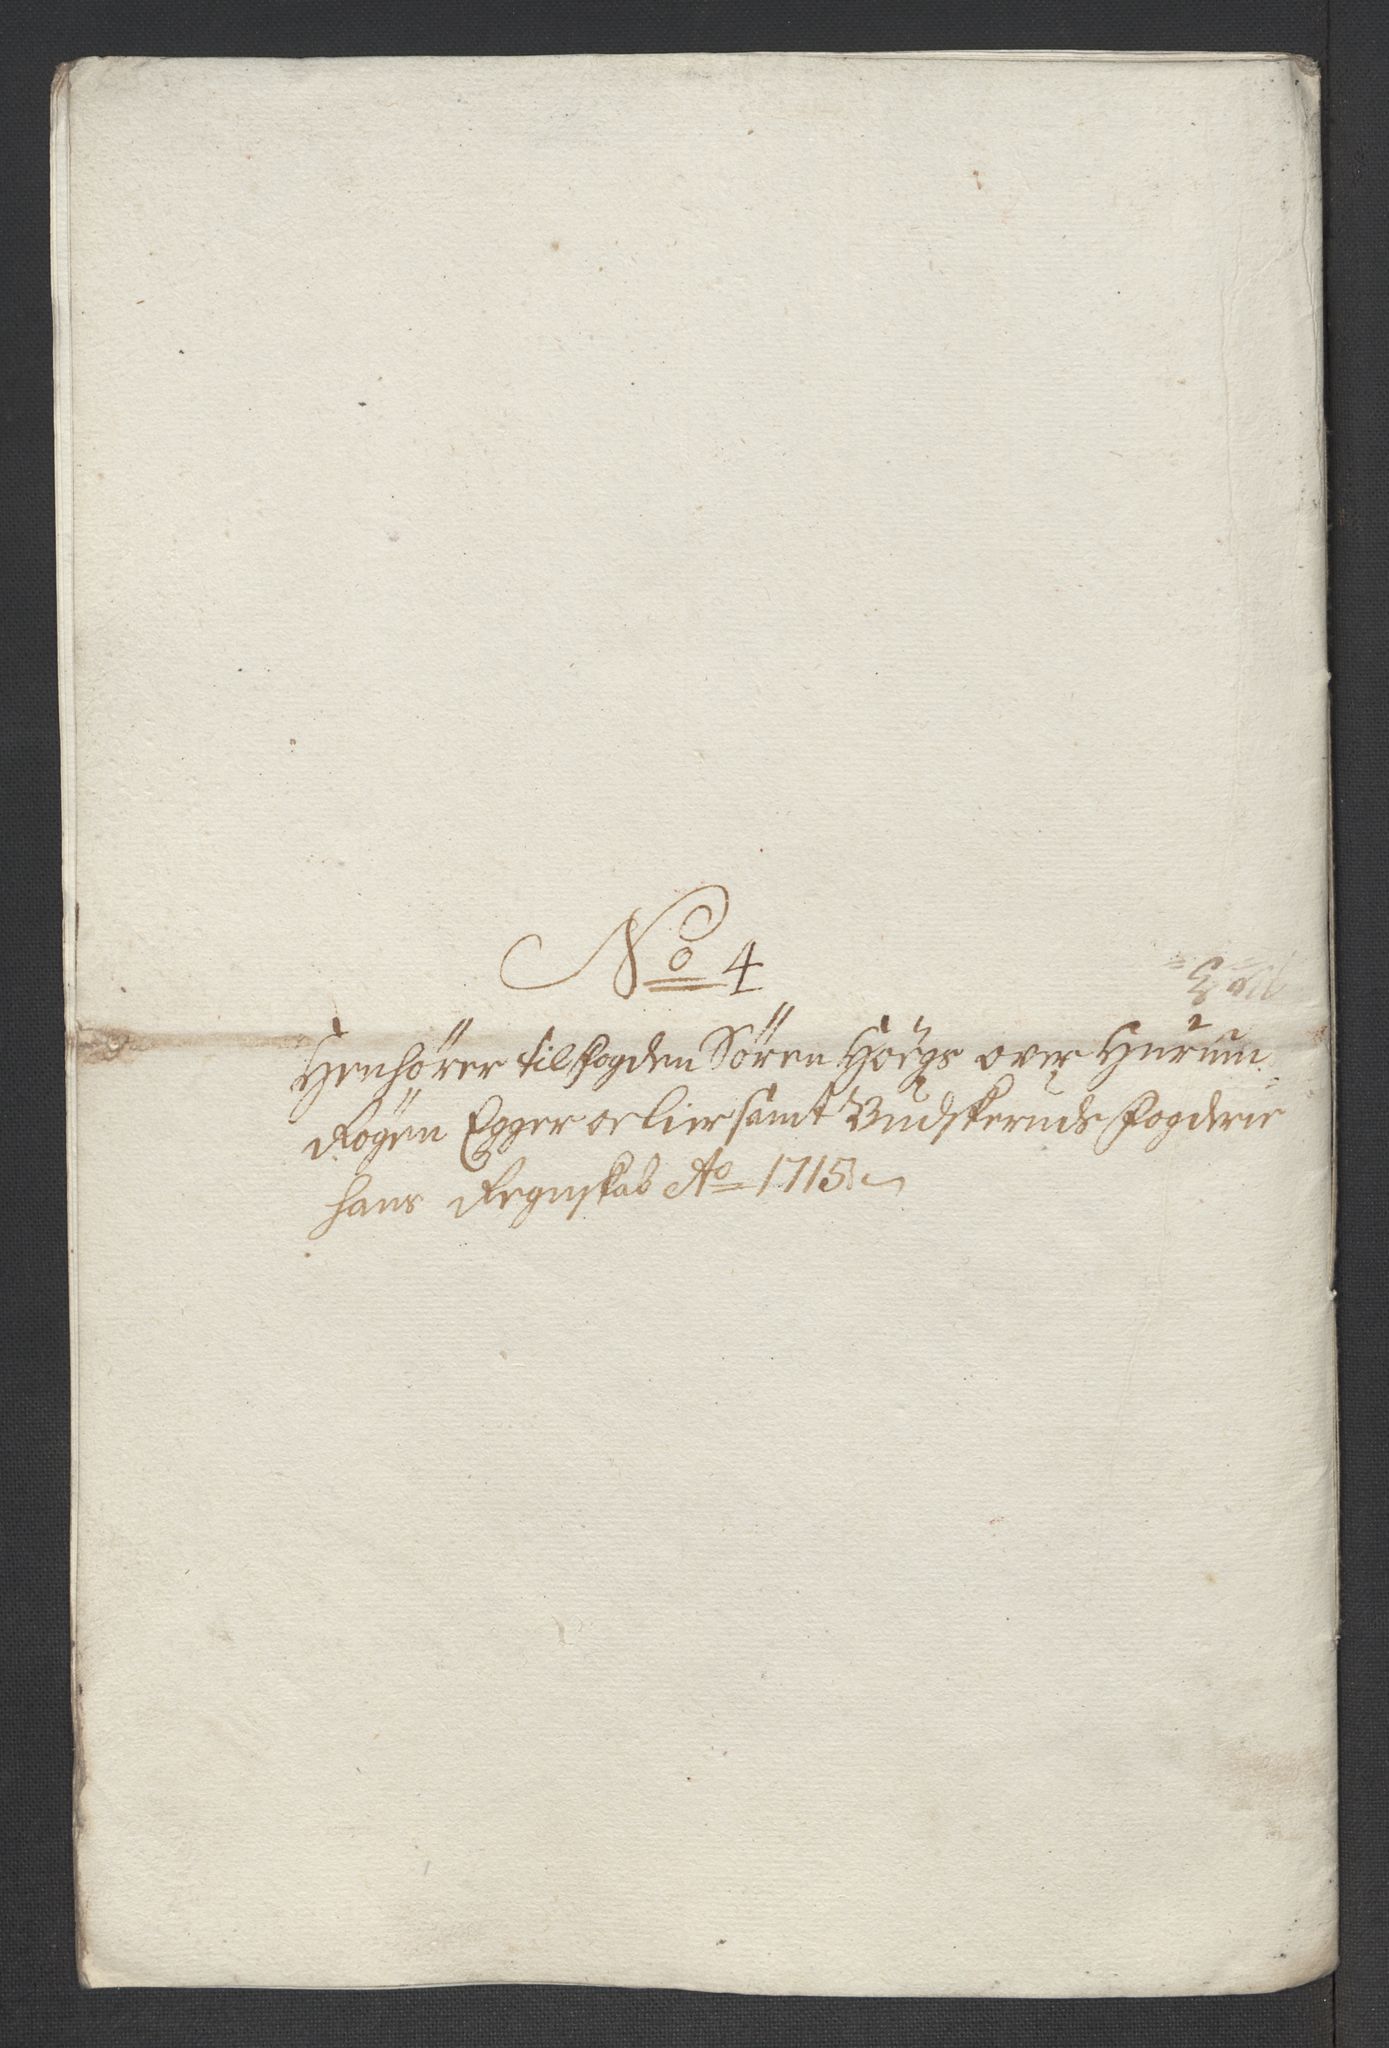 No 4
Henhörer til Fogden Sören Höegs over Hurum
Rögen Egger oc Lier samt Budskeruds Fogderie
hans Regnskab Ao 1715
No 3